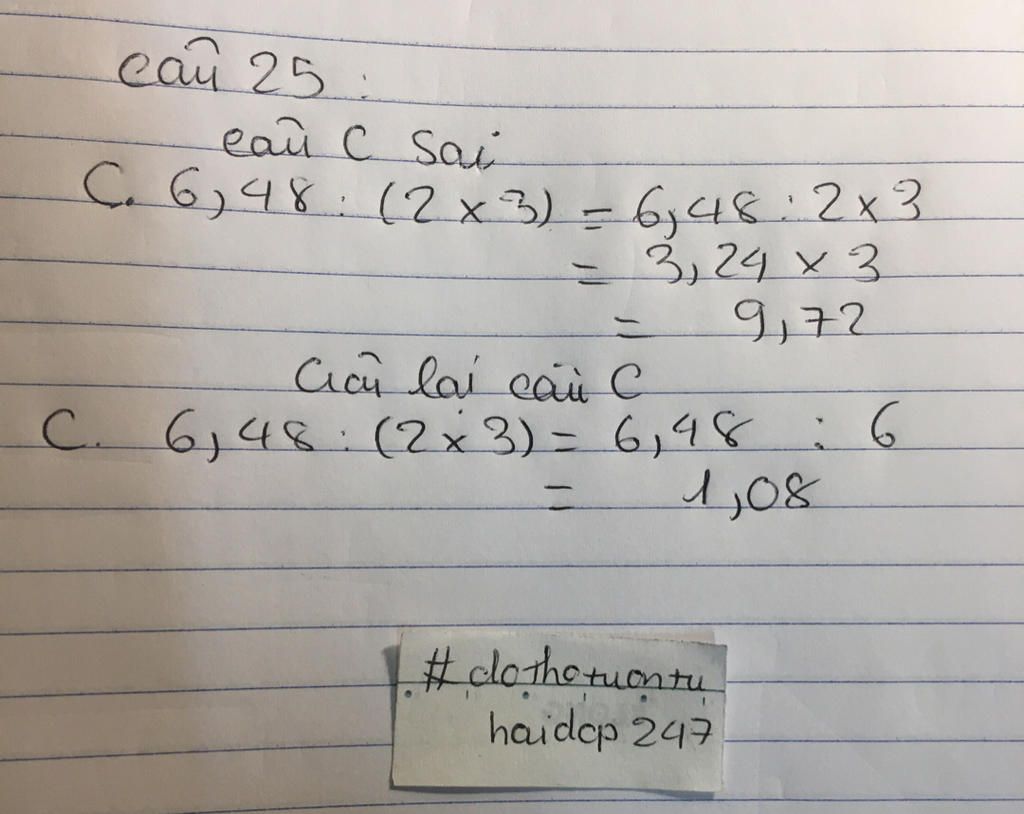 Câu 25 :
Câu C Sai
C. 6,48 : (2 x 3) = 6,48 : 2 x 3
= 3,24 x 3
= 9,72
Giải lại câu C
C. 6,48 : (2 x 3) = 6,48 : 6
= 1,08
# dothotuontu
haidcp 247